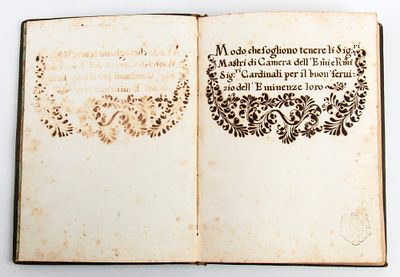 Modo che sogliono tenere li Sig.ri
Mastri di Camera dell'Emi e Rmi
Sig.ri Cardinali per il buon serui
zio dell'Eminenze loro